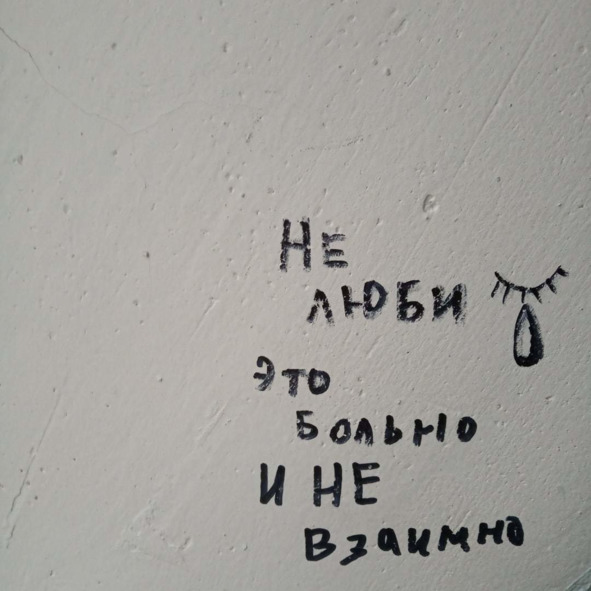 НЕ
ЛЮБИ
ЭТО
БОЛЬНО
И НЕ
Взаимно